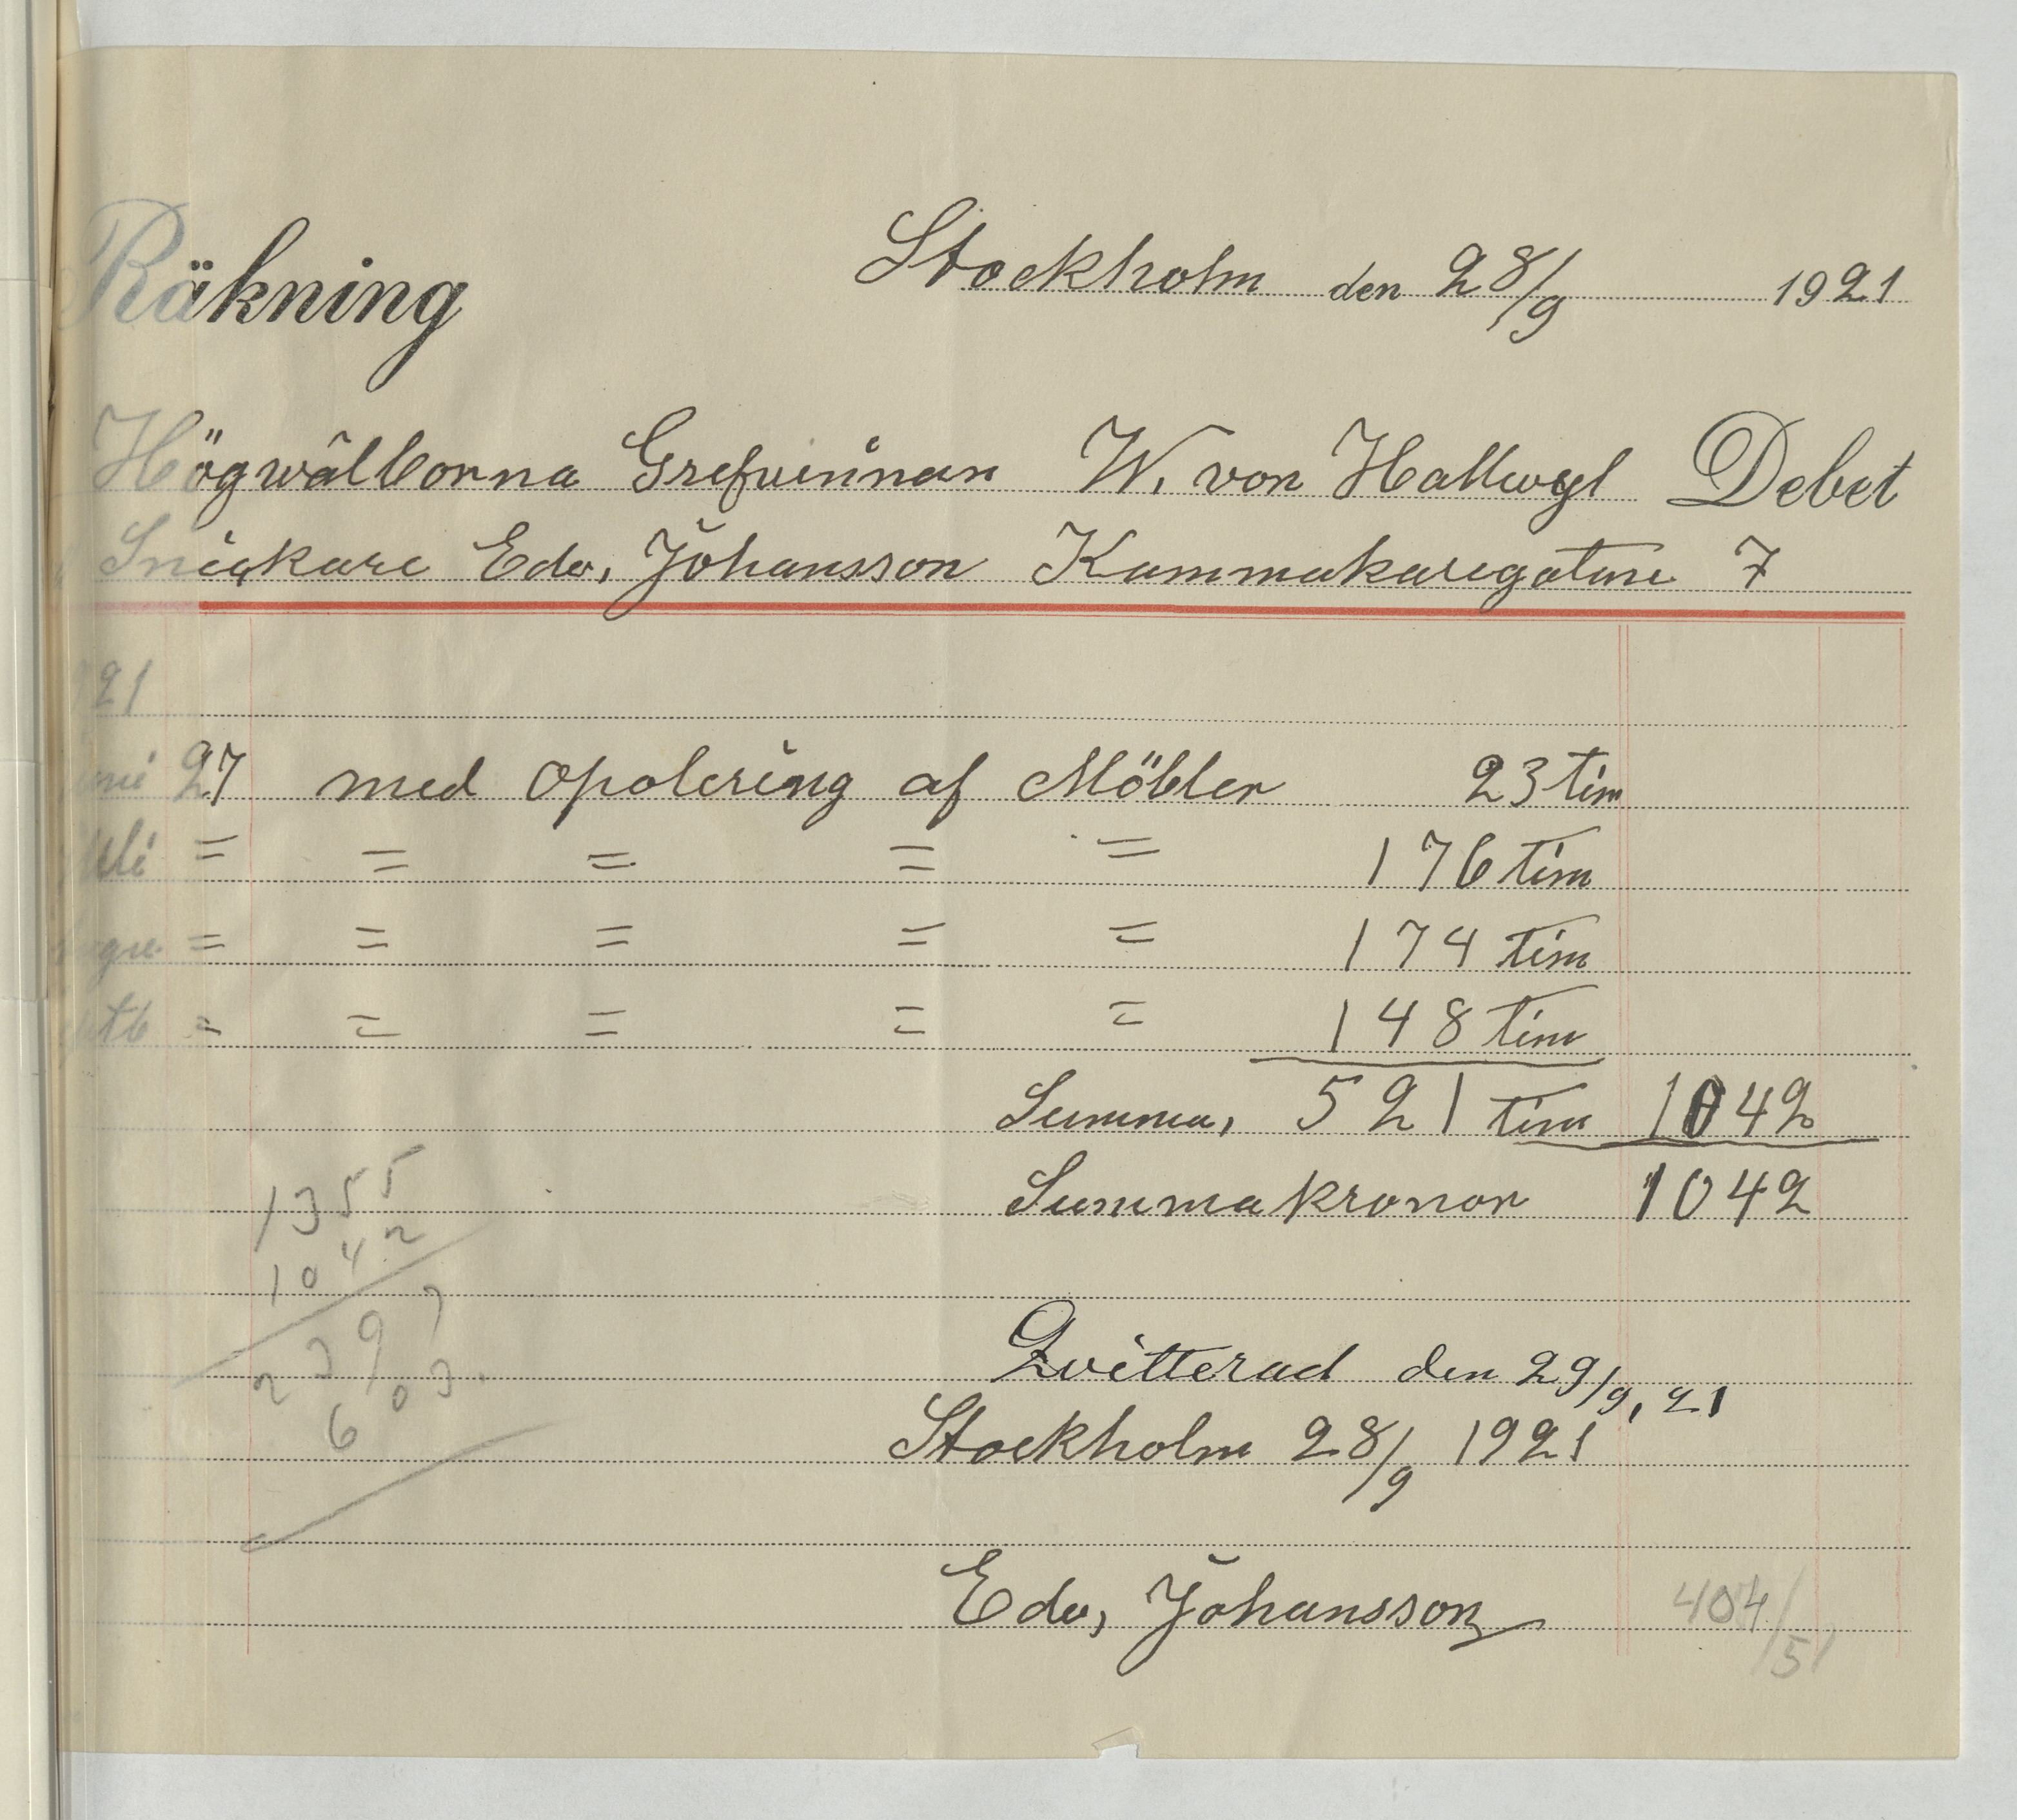 Räkning
Stockholm den 28/9 1921
Högwälborna Grefvinnan W. von Hallwyl Debet
Snickare Edv, Johansson Kammakaregatan 7
21
27 med opolering af Möbler 23 tim
= = = = = 176 tim
= = = = = 174 tim
= = = = = 148 tim
Summa, 521 tim 1042
Summa kronor 1042
1355
1042
2397
603.
Qvitterad den 29/9, 21
Stockholm 28/9 1921
Edv, Johansson
404/51